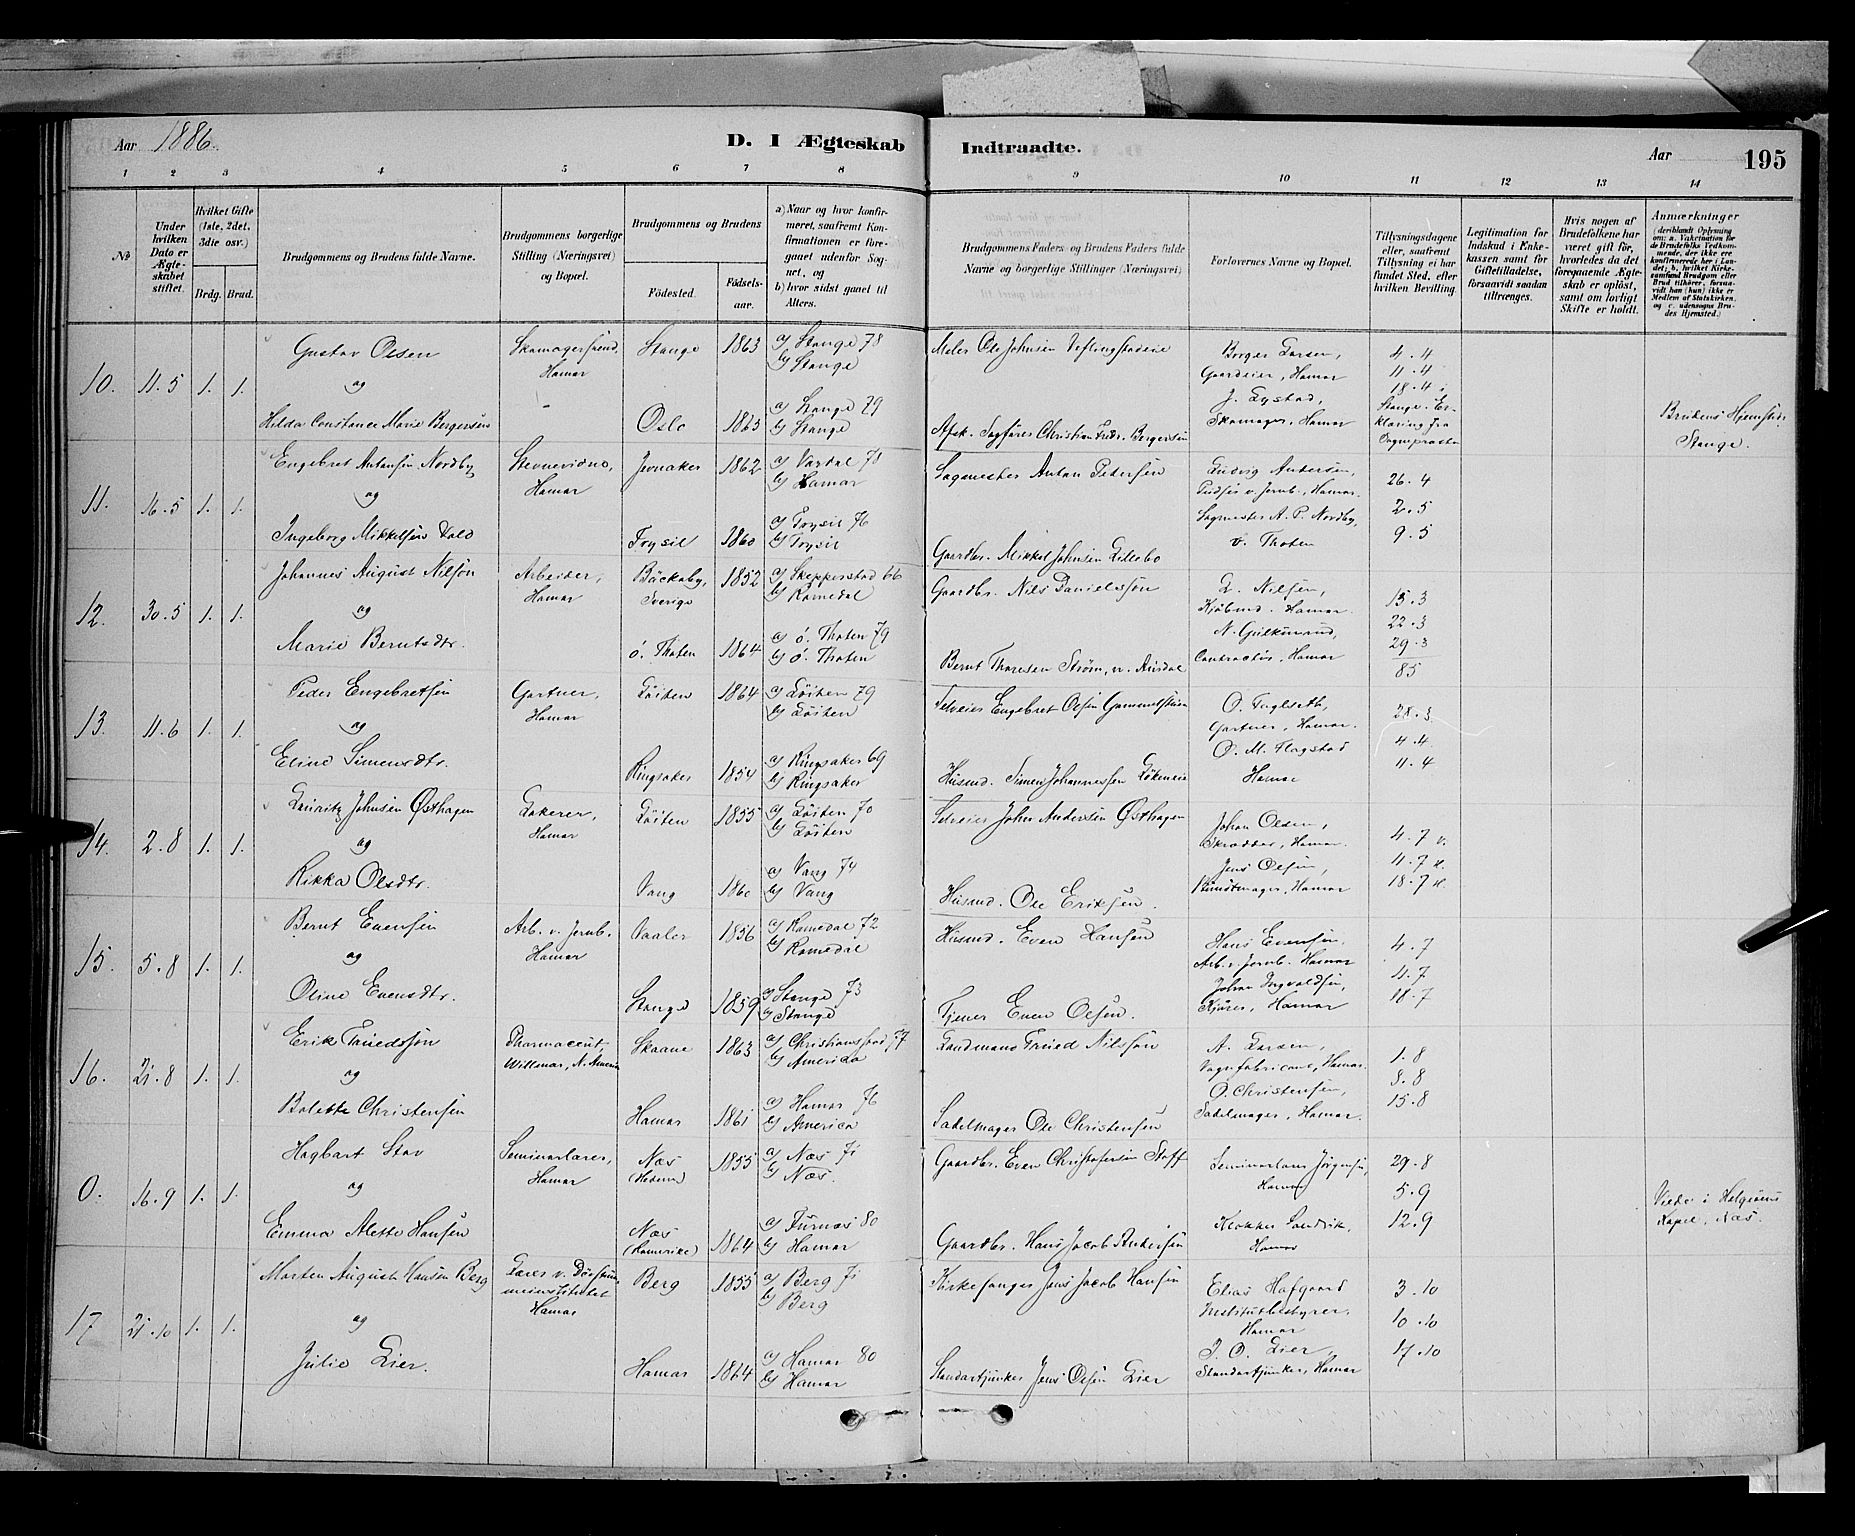 Aar 1886. D. I Ægteskab Indtraadte. Aar 195
1 2 3 4 5 6 7 8 8 9 10 11 12 13 14
No
Under hvilken Dato er Ægteskabet stiftet.
Hvilket Gifte (1ste, 2det, 3die osv.)
Brdg. Brud.
Brudgommens og Brudens fulde Navne.
Brudgommens borgerlige Stilling (Næringsvei) og Bopæl.
Brudgommens og Brudens
Fødested. Fødselsaar.
a) Naar og hvor konfirmeret, saafremt Konfirmationen er foregaaet udenfor Sognet, og
b) hvor sidst gaaet til Alters.
Brudgommens Faders og Brudens Faders fulde Navne og borgerlige Stillinger (Næringsvei)
Forlovernes Navne og Bopæl.
Tillysningsdagene eller, saafremt Tillysning ei har fundet Sted, efter hvilken Bevilling
Legitimation for Indskud i Enkekassen samt for Giftetilladelse, forsaavidt saadan tiltrænges.
Hvis nogen af Brudefolkene har været gift før, hvorledes da det foregaaende Ægteskab er opløst, samt om lovligt Skifte er holdt.
Anmærkninger
(deriblandt Oplysning om: a. Vakcination for de Brudefolks Vedkommende, der ikke ere konfirmerede her i Landet; b. hvilket Kirkesamfund Brudgom eller Brud tilhører, forsaavidt han (hun) ikke er Medlem af Statskirken, og c. udensogns Brudes Hjemsted.)
10. 11.5 1. 1.
Gustav Olsen
og
Hilda Constance Marie Bergersen
Skomagersvend, Hamar
Stange 1863 a) Stange 78 b) Stange
Oslo 1863 a) Stange 79 b) Stange
Møller Ole Johnsen
Afsk. Sagfører Christian Fredr. Bergersen
Borger Larsen,
Gaardeier, Hamar
J. Lystad,
Skomager, Hamar
4.4
11.4
18.4 i
Stange. Erklæring fra Sognepræsten
Brudens Hjemsted
Stange.
11. 16.5 1. 1.
Engebret Antonsen Nordby
og
Ingeborg Mikkelsen Vold
Hamar
Jevnaker 1862 a) Vardal 78 b) Hamar
Trysil 1860 a) Trysil 76 b) Trysil
Sagmester Anton Pedersen
Gaardbr. Mikkel Johnsen Lillebo
Ludvig Andersen,
Pudser v. Jernb., Hamar.
Sagmester A. P. Nordby,
v. Thoten
26.4
2.5
9.5
12. 30.5 1. 1.
Johannes August Nilson
og
Marie Berntsdtr.
Arbeider, Hamar
Bäckaby, Sverige 1852 a) Skepperstad 66 b) Romedal
ö. Thoten 1864 a) ö. Thoten 79 b) ö. Thoten
Gaardbr. Nils Danielsson
Bernt Thoresen Strøm,
L. Nilsen,
Kjøbmd. Hamar.
Hamar
15.3
22.3
29.3
85
13. 11.6 1. 1.
Peder Engebretsen
og
Eline Simensdtr.
Gartner, Hamar
Löiten 1864 a) Löiten 79 b) Löiten
Ringsaker 1854 a) Ringsaker 69 b) Ringsaker
Selveier Engebret Olsen
Husmd. Simen Johannessen
Gartner, Hamar.
O. M. Flagstad
Hamar
28.3
4.4
11.4
14. 2.8 1. 1.
Lauritz Johnsen Østhagen
og
Rikka Olsdtr.
Lakerer, Hamar
Löiten 1855 a) Löiten 70 b) Löiten
Vang 1860 a) Vang 74 b) Vang
Selveier John Andersen Østhagen
Husmd. Ole Eriksen.
Johan Olsen,
Skrædder, Hamar.
Jens Olsen,
Buntmager, Hamar
4.7
11.7
18.7
15. 5.8 1. 1.
Bernt Evensen
og
Oline Evensdtr.
Arb. v. Jernb. Hamar
Vaaler 1856 a) Romedal 72 b) Romedal
Stange 1859 a) Stange 73 b) Stange
Husmd. Even Hansen
Tjener Even Olsen.
Hans Evensen,
Arb. v. Jernb. Hamar
Johan Ingvaldsen,
Kjører, Hamar
4.7
11.7
18.7
16. 21.8 1. 1.
Erik Truedsson
og
Bolette Christensen
Pharmaceut Willmar, N. America
Skaane 1863 a) Christiansstad 77 b) America
Hamar 1861 a) Hamar 76 b) America
Landmand Trued Nilsson
Sadelmager Ole Christensen
A. Larsen,
Vognfabricant, Hamar.
O. Christensen,
Sadelmager, Hamar.
1.8
8.8
15.8
0. 16.9 1. 1.
Hagbart Stav
og
Emma Alette Hansen
Seminarlærer, Hamar
Næs (Hedem) 1855 a) Næs 71 b) Næs.
Næs (Romerike) 1864 a) Furnæs 80 b) Hamar
Gaardbr. Even Christofersen Staff
Gaardbr. Hans Jacob Andersen
Seminarlærer Jörgensen
Hamar
Klokker Sandvik,
Hamar
29.8
5.9
12.9
Viede i Helgøens
Kapel, Næs.
17 21.10 1. 1.
Morten August Hansen Berg
og
Julie Lier.
Lærer v. Døvstummeinstitutet Hamar
Berg 1855 a) Berg 71 b) Berg
Hamar 1864 a) Hamar 80 b) Hamar
Kirkesanger Jens Jacob Hansen
Standartjunker Jens Olsen Lier
Elias Hofgaard
Institutbestyrer,
Hamar
J. O. Lier,
Standartjunker, Hamar
3.10
10.10
17.10